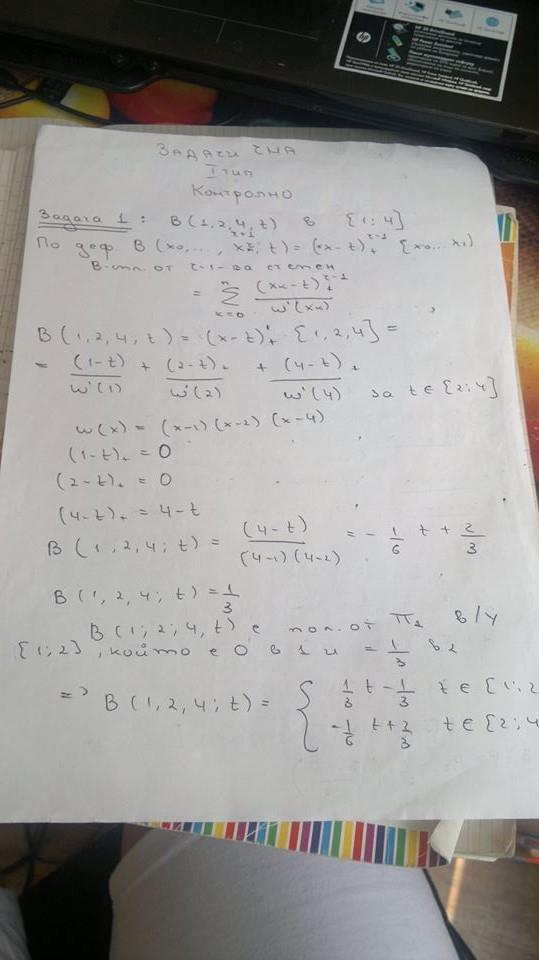 Задачи ЧМА
I тип
Контролно
Задача 1: B(1,2,4,t) в [1;4]
По деф. B(x₀,..., xᵣ; t) = (x-t)₊^{r-1} [x₀...xᵣ]
B-пл. от r-1-ва степен
= \sum_{k=0}^{n} \frac{(x_k-t)_+^{r-1}}{w'(x_k)}
B(1,2,4,t) = (x-t)₊' [1,2,4] =
= \frac{(1-t)}{w'(1)} + \frac{(2-t)_+}{w'(2)} + \frac{(4-t)_+}{w'(4)} за t ∈ [2;4]
w(x) = (x-1)(x-2)(x-4)
(1-t)₊ = 0
(2-t)₊ = 0
(4-t)₊ = 4-t
B(1,2,4;t) = \frac{(4-t)}{(4-1)(4-2)} = -\frac{1}{6}t + \frac{2}{3}
B(1,2,4;t) = \frac{1}{3}
B(1;2;4,t) е пол. от П₂ в/у
[1;2], който е 0 в 1 и = \frac{1}{3} в 2
=> B(1,2,4;t) = { \frac{1}{3}t - \frac{1}{3} t ∈ [1;2
-\frac{1}{6}t + \frac{2}{3} t ∈ [2;4
hp